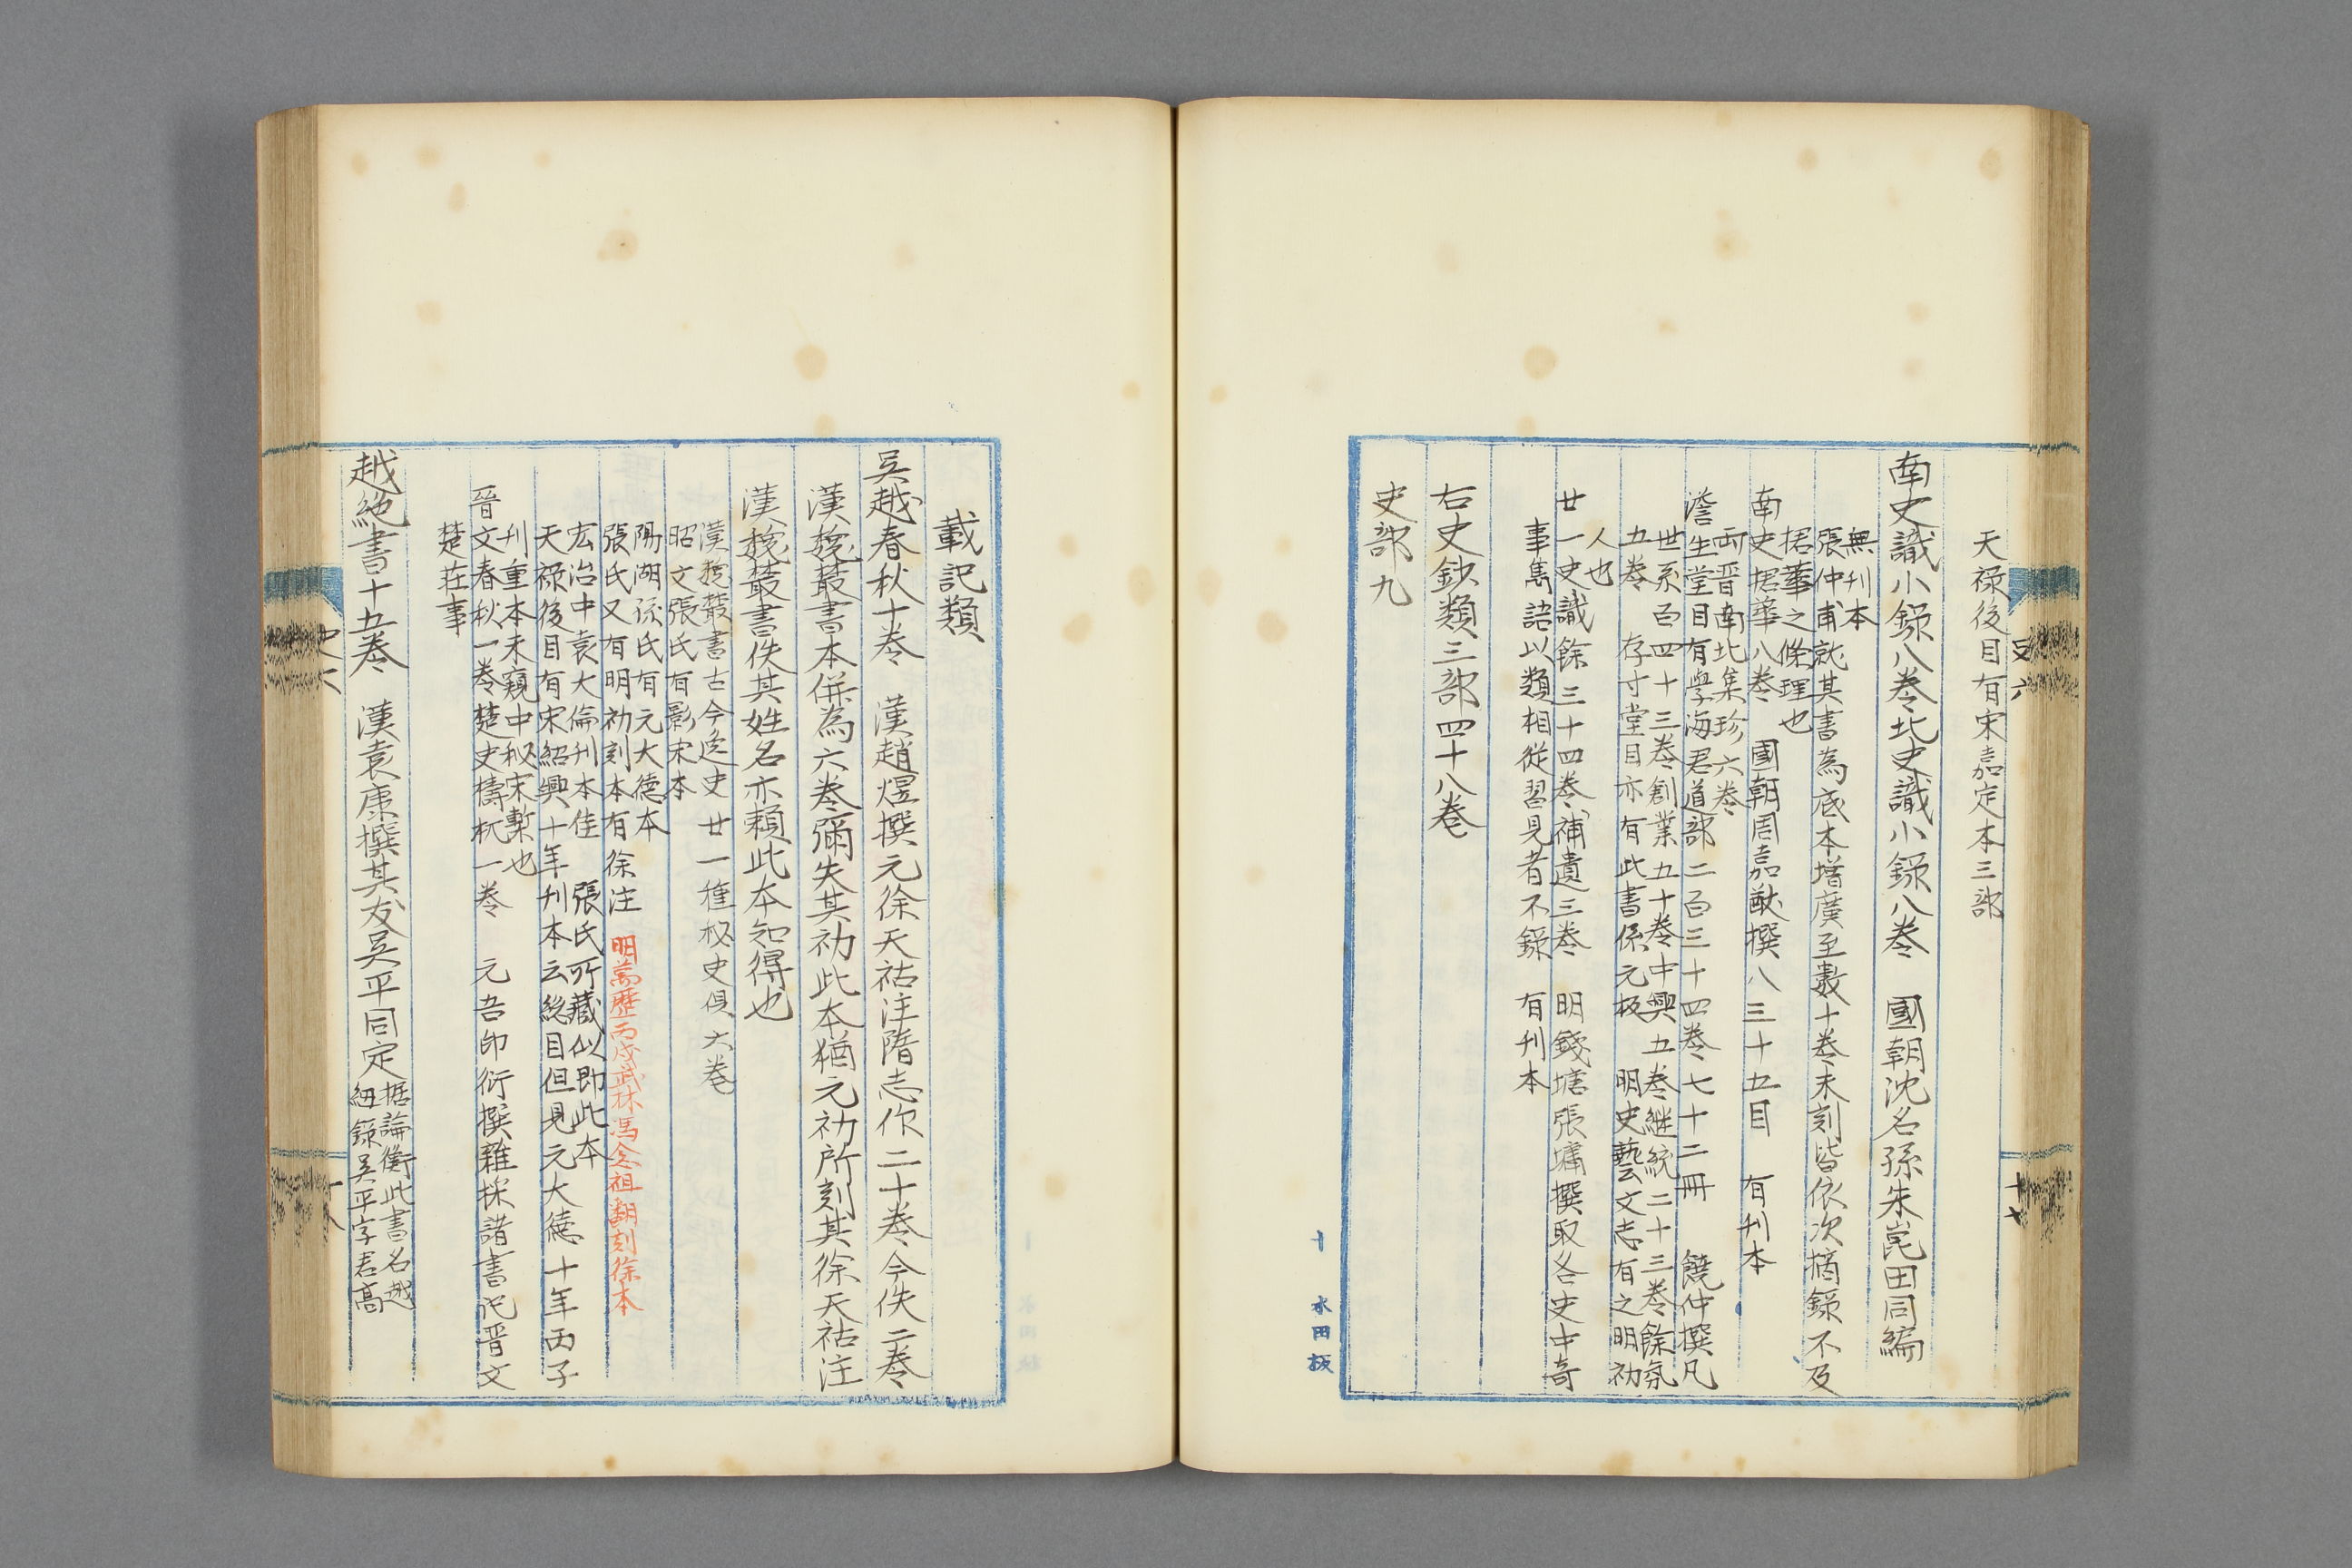 天禄後目有宋嘉定本三部
南史識小錄八卷北史識小錄八卷　國朝沈名孫朱崑田同編
無刊本
張仲甫就其書為底本增廣至數十卷未刻皆依次摘錄不及
捃華之條理也
南史捃華八卷　國朝周嘉猷撰八三十五目　有刊本
兩晉南北集珍六卷
澹生堂目有學海君道部二百三十四卷七十二冊　饒仲撰凡
世系百四十三卷創業五十卷中興五卷継統二十三卷餘氛
五卷　存寸堂目亦有此書係元板　明史藝文志有之明初
人也
廿一史識餘三十四卷補遺三卷　明錢塘張墉撰取各史中奇
事雋語以類相從習見者不錄　有刊本
右史鈔類三部四十八卷
史部九
史六
十七
水田板
載記類
吳越春秋十卷　漢趙煜撰元徐天祜注隋志作二十卷今佚二卷
漢魏叢書本併為六卷彌失其初此本猶元初所刻其徐天祜注
漢魏叢書佚其姓名亦賴此本知得也
漢魏叢書古今逸史　廿一種秘史俱六卷
昭文張氏有影宋本
陽湖孫氏有元大德本
張氏又有明初刻本有徐注　明萬歷丙戌武林馮念祖翻刻徐本
宏治中袁大倫刊本佳　張氏所藏似即此本
天禄後目有宋紹興十年刊本云總目但見元大德十年丙子
刊重本未窺中秘宋槧也
晉文春秋一卷楚史檮杌一卷　元吾邱衍撰雜採諸書記晋文
楚莊事
越絶書十五卷　漢袁康撰其友吳平同定據論衡此書名越
紐錄吳平字君高
史六
十八